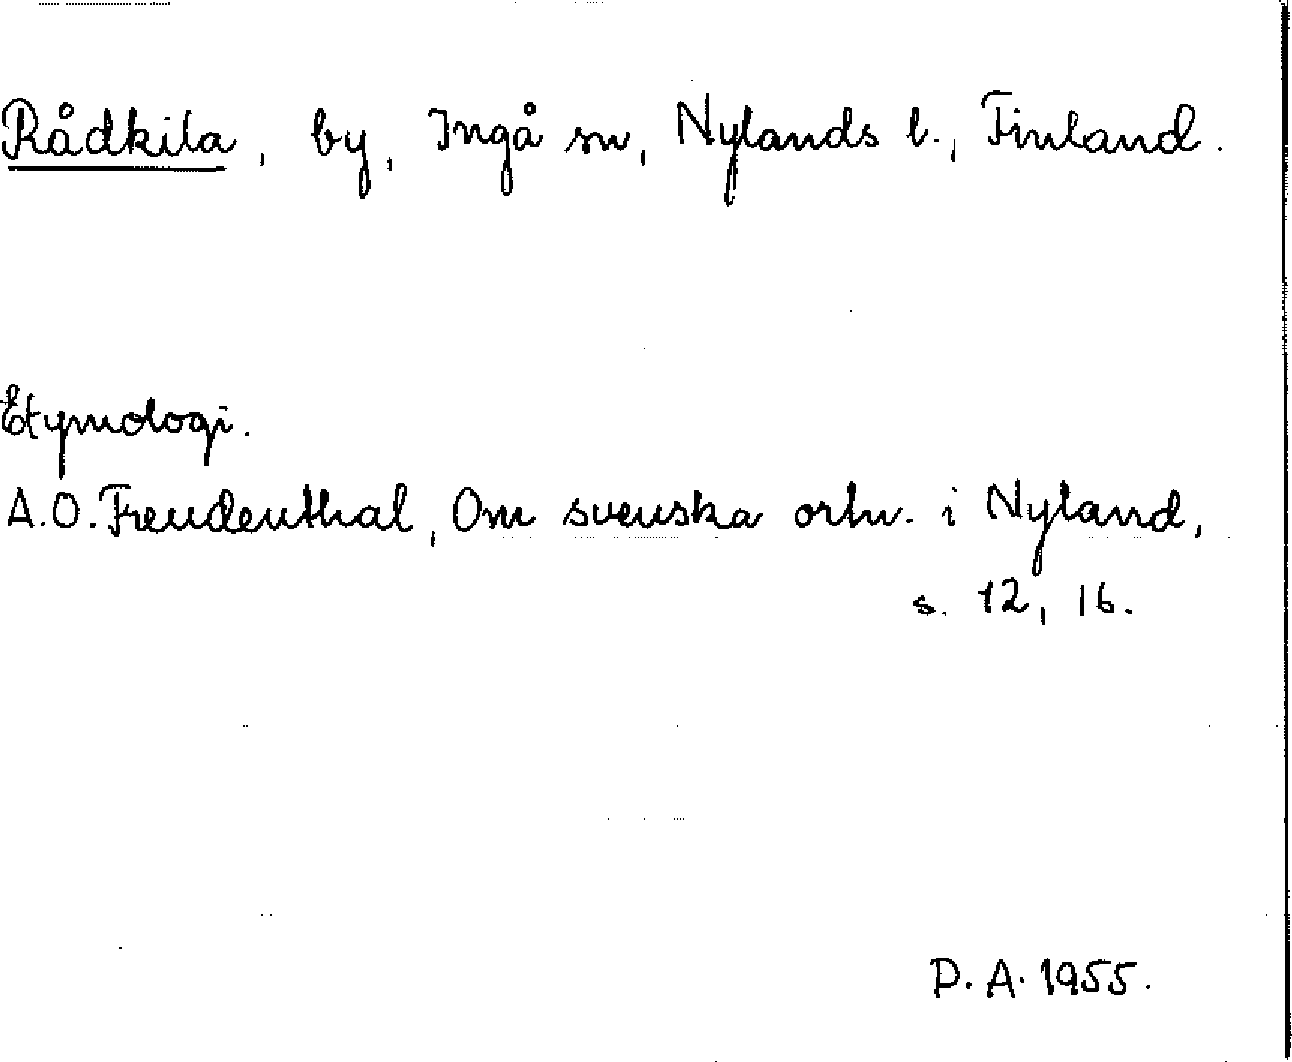 Rådkila, by, Ingå sn, Nylands l., Finland.
Etymologi.
A.O. Freudenthal, Om svenska ortn. i Nyland,
s. 12, 16.
P.A. 1955.